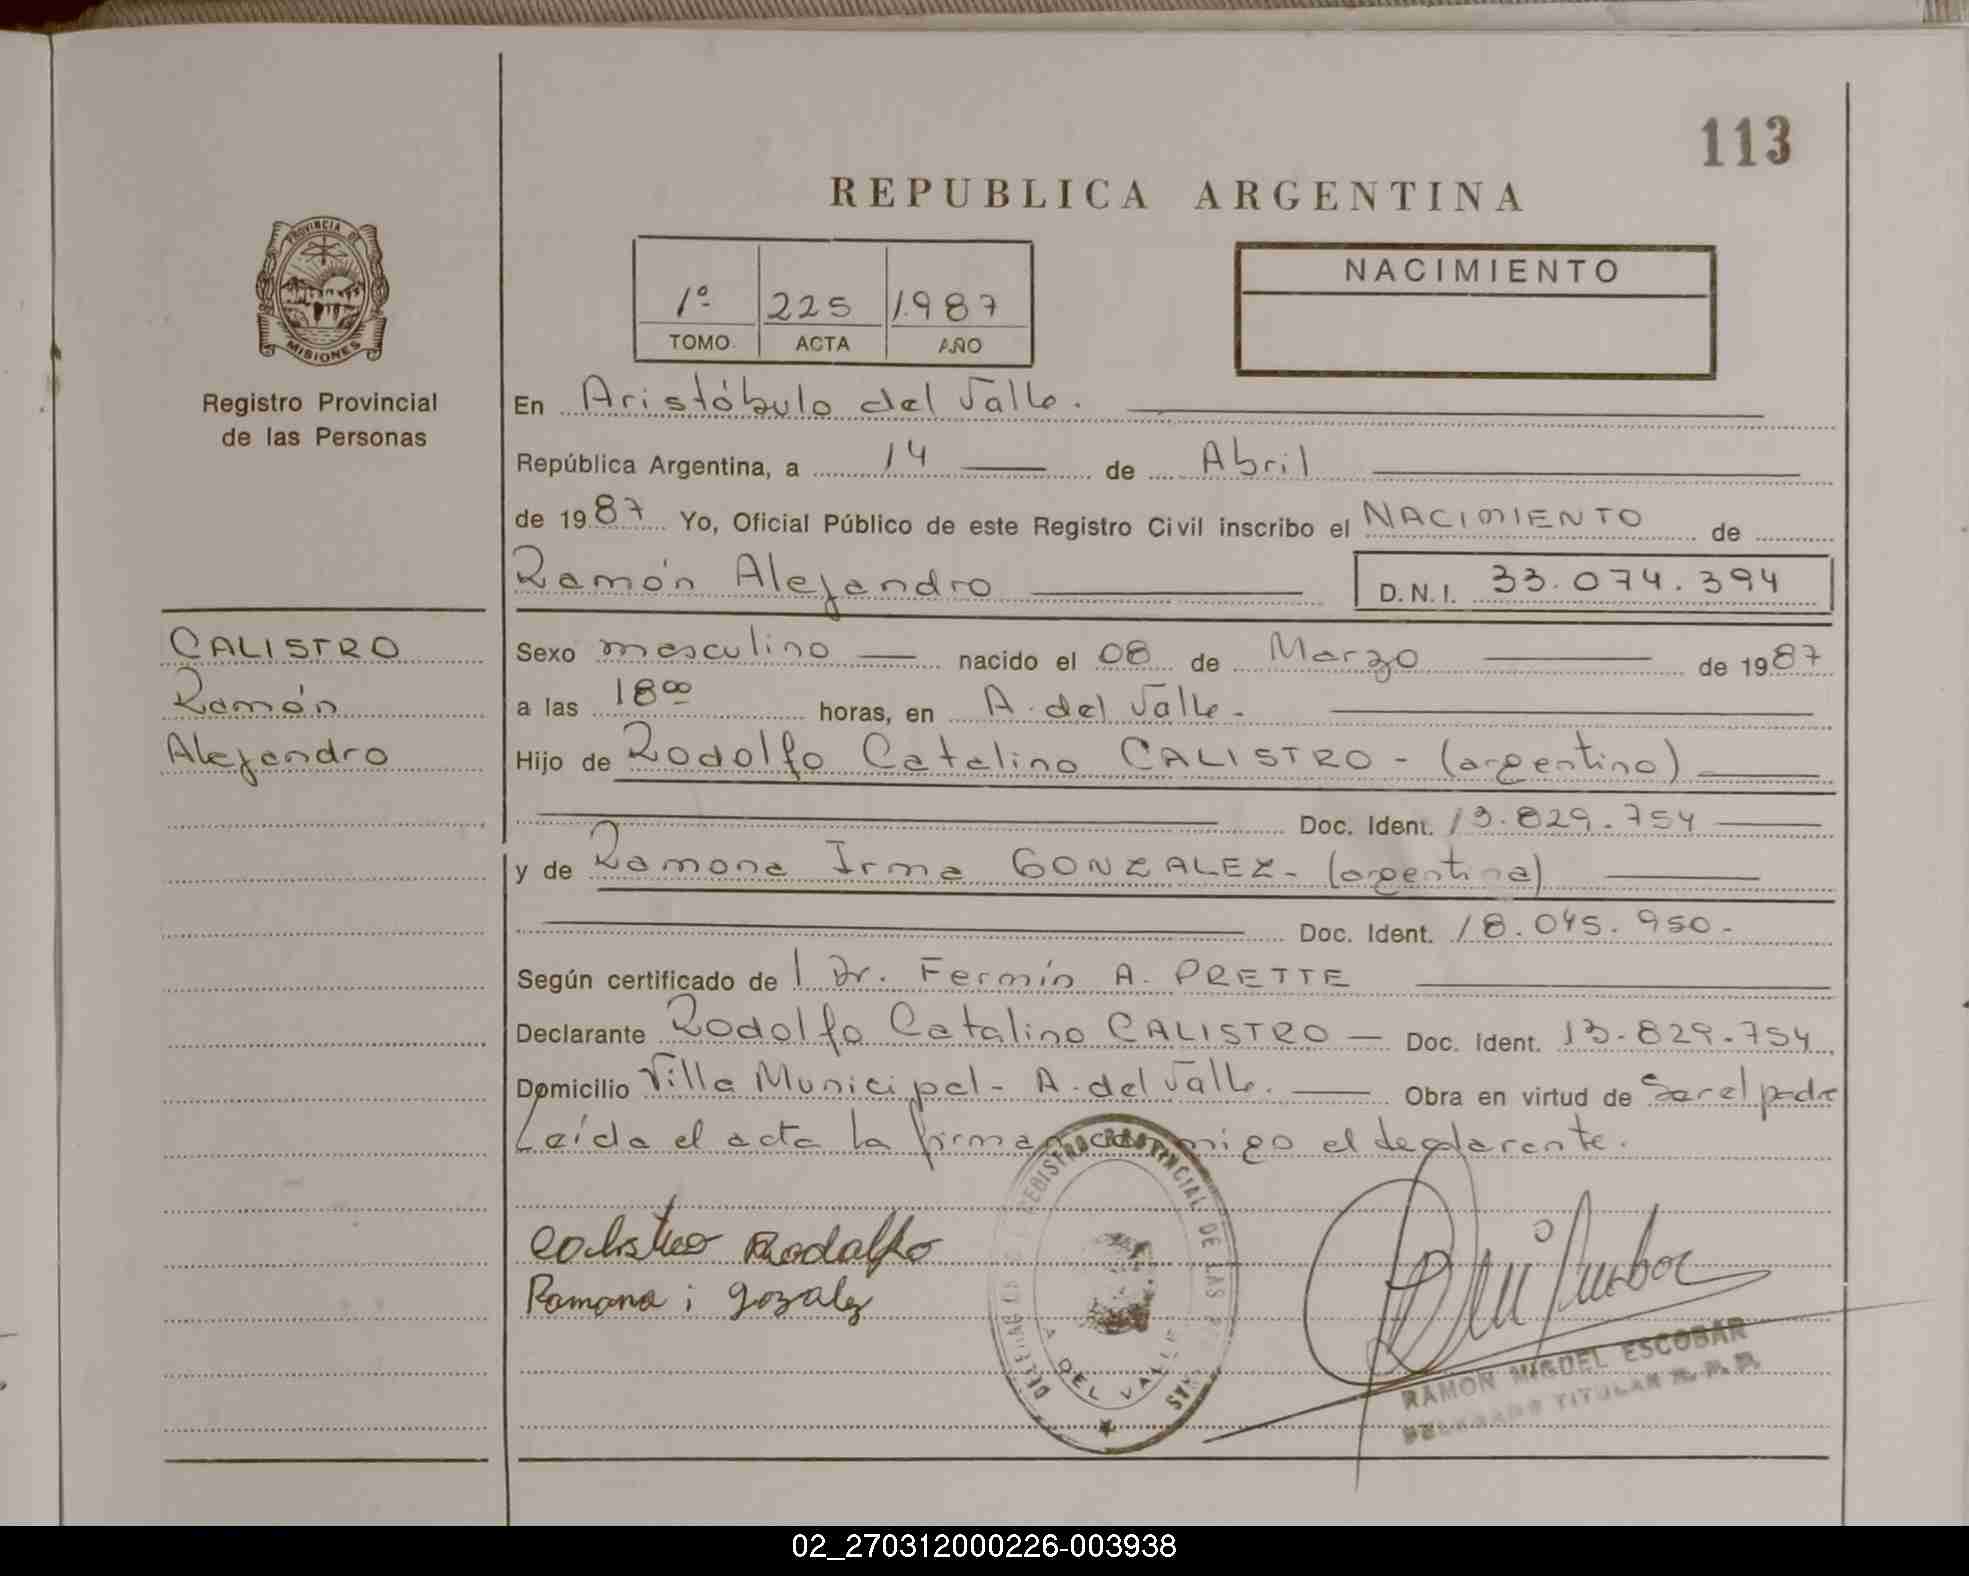 113
REPUBLICA ARGENTINA
PROVINCIA DE
MISIONES
Registro Provincial
de las Personas
1º 225 1987
TOMO ACTA AÑO
NACIMIENTO
En Aristóbulo del Valle.
República Argentina, a 14 de Abril
de 1987 Yo, Oficial Público de este Registro Civil inscribo el NACIMIENTO de
Ramón Alejandro D.N.I. 33.074.394
CALISTRO
Ramón
Alejandro
Sexo masculino nacido el 08 de Marzo de 1987
a las 18 00 horas, en A. del Valle.
Hijo de Rodolfo Catalino CALISTRO - (argentino)
Doc. Ident. 13.829.754
y de Ramona Irma GONZALEZ - (argentina)
Doc. Ident. 18.045.950.
Según certificado de l Dr. Fermín A. PRETTE
Declarante Rodolfo Catalino CALISTRO — Doc. Ident. 13.829.754
Domicilio Villa Municipal - A. del Valle. Obra en virtud de Ser el padre
Leída el acta la firman conmigo el declarante.
Calistro Rodolfo
Ramona i gozalez
REGISTRO PROVINCIAL DE LAS
A. DEL VALLE
RAMON MIGUEL ESCOBAR
DELEGADO TITULAR R.P.P.
02_270312000226-003938